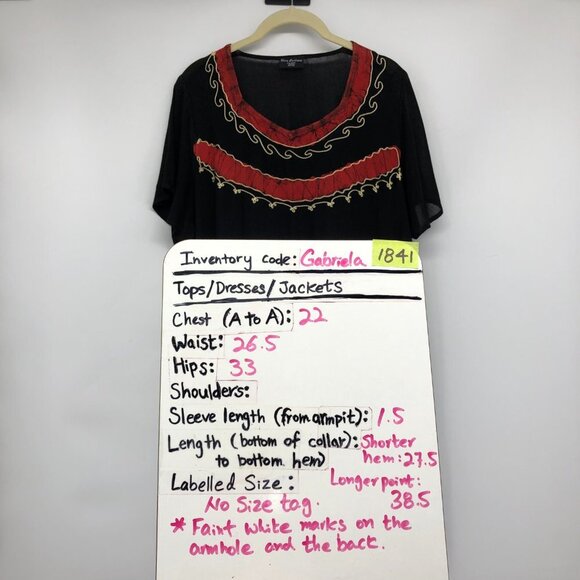 Inventory code: Gabriela 1841
Tops/Dresses/Jackets
Chest (A to A): 22
Waist: 26.5
Hips: 33
Shoulders:
Sleeve length (from armpit): 1.5
Length (bottom of collar): Shorter
to bottom hem) hem: 27.5
Labelled Size: Longer point:
No Size tag. 38.5
* Faint white marks on the
armhole and the back.